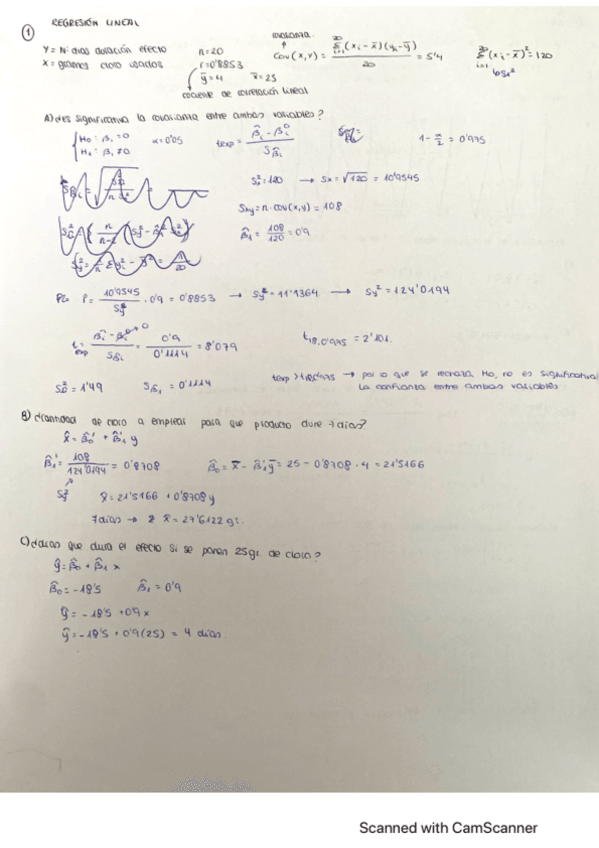 ① REGRESIÓN LINEAL
covarianza
Y = Nº dias duración efecto n=20 Cov(x,y) = Σ(xi - x̄)(yi - ȳ) / 20 = 5'4 Σ(xi - x̄)² = 120
X = gramos cloro usados r=0'8853
ȳ=4 x̄=25
cociente de correlación lineal
A) ¿es significativa la covarianza entre ambas variables?
H₀: β₁=0 α=0'05 texp = (β̂₁ - β₁⁰) / Sβ̂₁ 1 - α/2 = 0'975
H₁: β₁≠0
Sx² = 120 → Sx = √120 = 10'9545
Sxy = n·cov(x,y) = 108
β̂₁ = 108/120 = 0'9
r = 10'9545/Sy · 0'9 = 0'8853 → Sy = 11'1364 → Sy² = 124'0194
texp = (β̂₁ - β₁⁰) / Sβ̂₁ = 0'9 / 0'1114 = 8'079 t₁₈,₀'₉₇₅ = 2'101
1'49 Sβ̂₁ = 0'1114 texp > t₁₈,₀'₉₇₅ → por lo que se rechaza H₀, no es significativa
la confianza entre ambas variables
B) ¿cantidad de cloro a emplear para que producto dure 7 dias?
x̂ = β̂₀' + β̂₁' y
β̂₁' = 108 / 124'0194 = 0'8708 β̂₀ = x̄ - β̂₁' ȳ = 25 - 0'8708 · 4 = 21'5166
Sy² x̂ = 21'5166 + 0'8708 y
7 dias → x̂ = 27'6122 g.
C) ¿dias que dura el efecto si se ponen 25gr. de cloro?
ŷ = β̂₀ + β̂₁ x
β̂₀ = -18'5 β̂₁ = 0'9
ŷ = -18'5 + 0'9 x
ŷ = -18'5 + 0'9 (25) = 4 dias.
Scanned with CamScanner